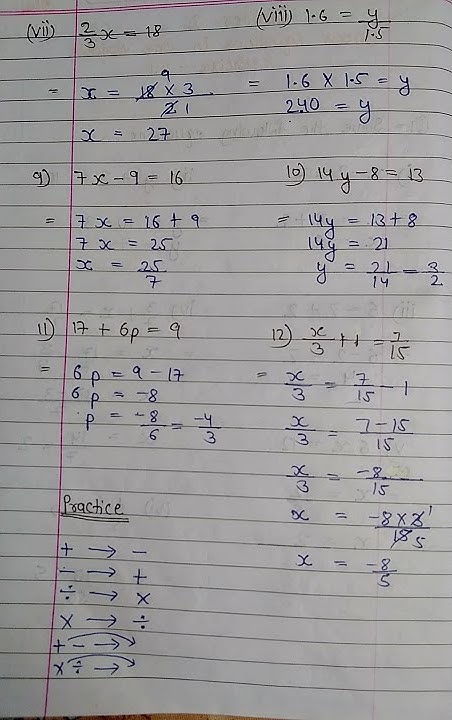 (vii) 2/3 x = 18
= x = 18 9 × 3 / 2 1
x = 27
(viii) 1.6 = y/1.5
= 1.6 × 1.5 = y
2.40 = y
9) 7x - 9 = 16
= 7x = 16 + 9
7x = 25
x = 25/7
10) 14y - 8 = 13
= 14y = 13 + 8
14y = 21
y = 21/14 = 3/2
11) 17 + 6p = 9
= 6p = 9 - 17
6p = -8
p = -8/6 = -4/3
12) x/3 + 1 = 7/15
= x/3 = 7/15 - 1
x/3 = 7-15/15
x/3 = -8/15
x = -8 × 3 1 / 15 5
x = -8/5
Practice
+ → -
- → +
÷ → ×
× → ÷
+ - →
× ÷ →